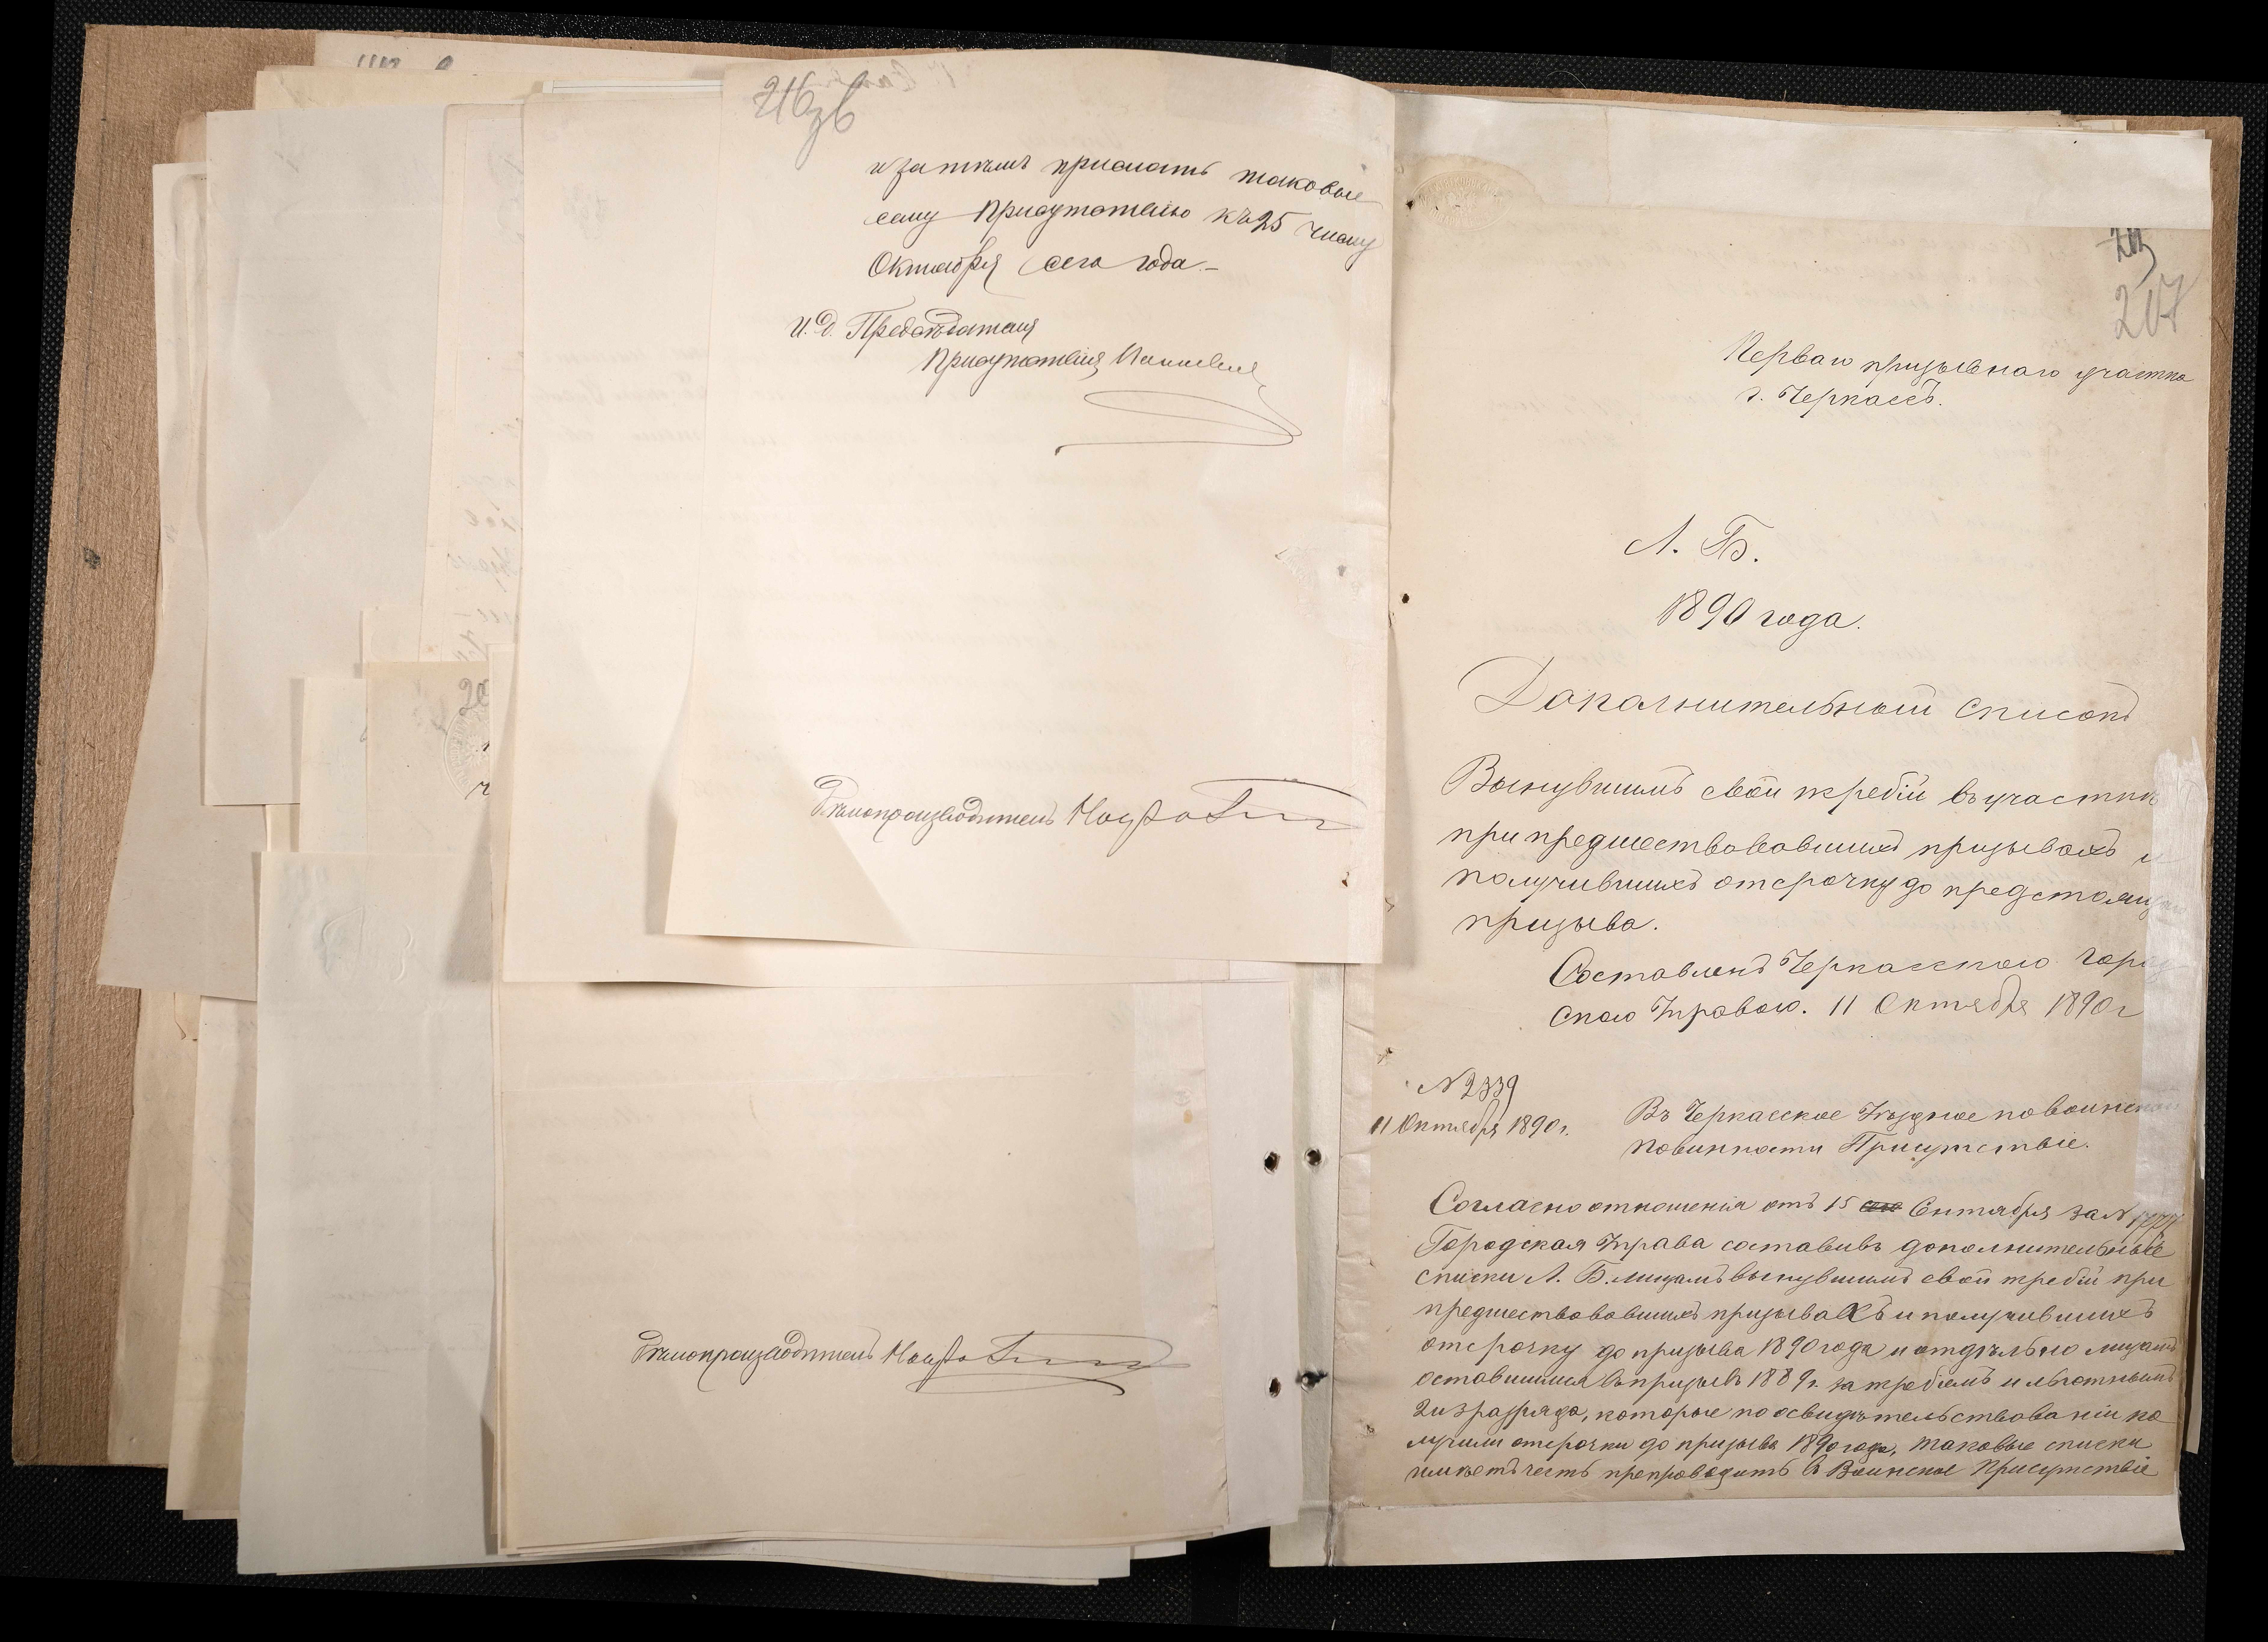 216 зв
и затѣмъ прислать таковые
сему Присутствію къ 25 числу
Октября сего года.-
И. д. Предсѣдателя
Присутствія
Дѣлопроизводитель
Дѣлопроизводитель
207
Перваго призывнаго участка
г. Черкассъ.
Л. Б.
1890 года.
Дополнительный списокъ
Вынувшимъ свой жребій въ участкѣ
при предшествовавшихъ призывахъ и
получившихъ отсрочку до предстоящаго
призыва.
Составленъ Черкасскою город
скою Управою. 11 Октября 1890 г
№ 2339
11 Октября 1890 г.
Въ Черкасское Уѣздное по воинской
повинности Присутствіе.
Согласно отношенія отъ 15 Сентября за №
Городская Управа составивъ дополнительные
списки Л. Б. лицамъ вынувшимъ свой жребій при
предшествовавшихъ призывахъ и получившихъ
отсрочку до призыва 1890 года и отдѣльно лицамъ
оставшимся въ призывъ 1889 г. за жребіемъ и льготнымъ
2 и 3 разряда, которые по освидѣтельствованіи по
лучили отсрочки до призыва 1890 года, таковые списки
имѣетъ честь препроводить въ Воинское Присутствіе